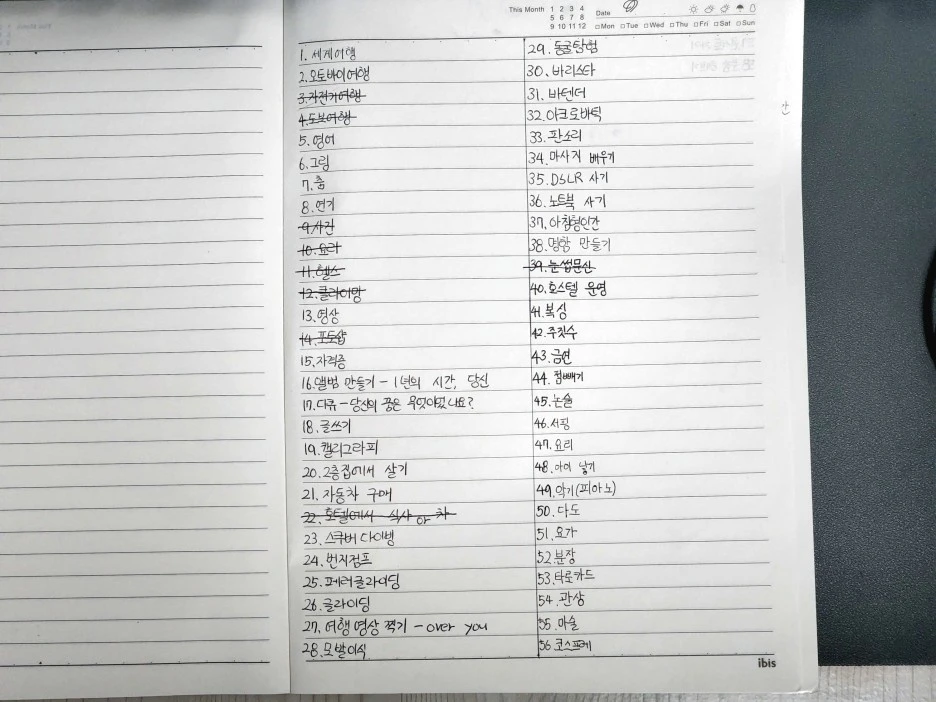 This Month 1 2 3 4
5 6 7 8
9 10 11 12
Date
□Mon □Tue □Wed □Thu □Fri □Sat □Sun
1. 세계여행
2. 오토바이여행
3. 자전거여행
4. 도보여행
5. 영어
6. 그림
7. 춤
8. 연기
9. 사진
10. 요리
11. 헬스
12. 클라이밍
13. 영상
14. 포토샵
15. 자격증
16. 앨범 만들기 - 1년의 시간, 당신
17. 다큐 - 당신의 꿈은 무엇이었나요?
18. 글쓰기
19. 캘리그라피
20. 2층집에서 살기
21. 자동차 구매
22. 호텔에서 식사 or 차
23. 스쿠버 다이빙
24. 번지점프
25. 페러글라이딩
26. 글라이딩
27. 여행 영상 찍기 - over you
28. 모발이식
29. 동굴탐험
30. 바리스타
31. 바텐더
32. 아크로바틱
33. 판소리
34. 마사지 배우기
35. DSLR 사기
36. 노트북 사기
37. 아침형인간
38. 명함 만들기
39. 눈썹문신
40. 호스텔 운영
41. 복싱
42. 주짓수
43. 금연
44. 점빼기
45. 논술
46. 서핑
47. 요리
48. 아이 낳기
49. 악기(피아노)
50. 다도
51. 요가
52. 분장
53. 타로카드
54. 관상
55. 마술
56 코스프레
ibis